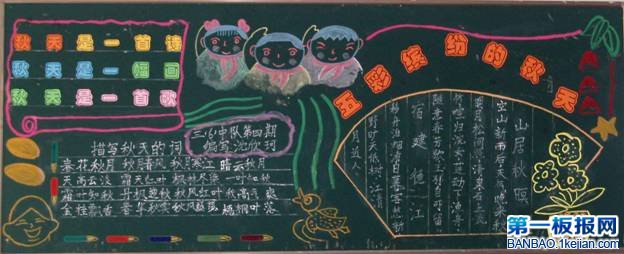 秋天是一首诗
秋天是一幅画
秋天是一首歌
五彩缤纷的秋天
三(6)中队第四期
编写:沈欣
描写秋天的词
春花秋月
天高云淡
一叶知秋 秋风红叶 秋高气爽
金桂飘香 春华秋实
山居秋暝
空山新雨后天气晚来秋
明月松间照清泉石上流
竹喧归浣女莲动下渔舟
随意春芳歇王孙自可留
宿建德江
移舟泊烟渚日暮客愁新
野旷天低树江清
月近人
第一板报网
BANBAO.1kejian.com